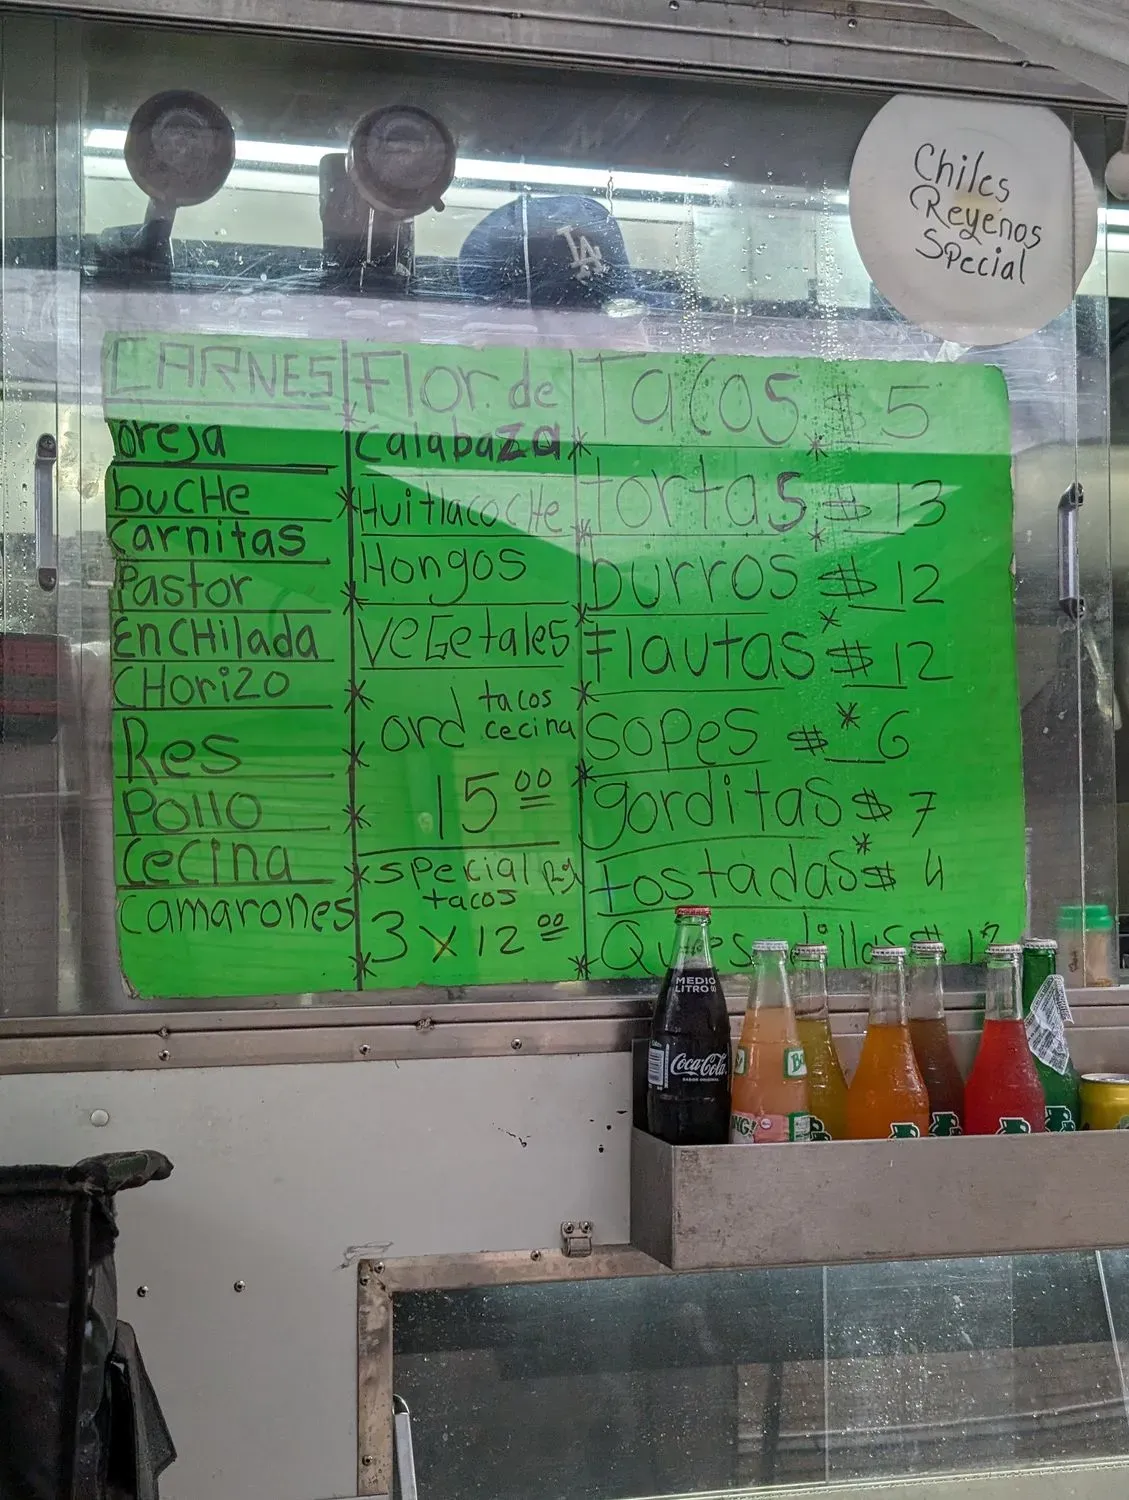 Chiles
Reyenos
Special
LA
CARNES
oreja
buCHe
Carnitas
Pastor
EnCHilada
CHorizo
Res
Pollo
Cecina
Camarones
Flor de
Calabaza
HuitlacoCHe
Hongos
VeGetales
ord tacos
cecina
15.00
special
tacos
3 x 12.00
Tacos $ 5
tortas $ 13
burros $ 12
Flautas $ 12
Sopes $ 6
gorditas $ 7
tostadas $ 4
MEDIO
LITRO
Coca-Cola
SABOR ORIGINAL